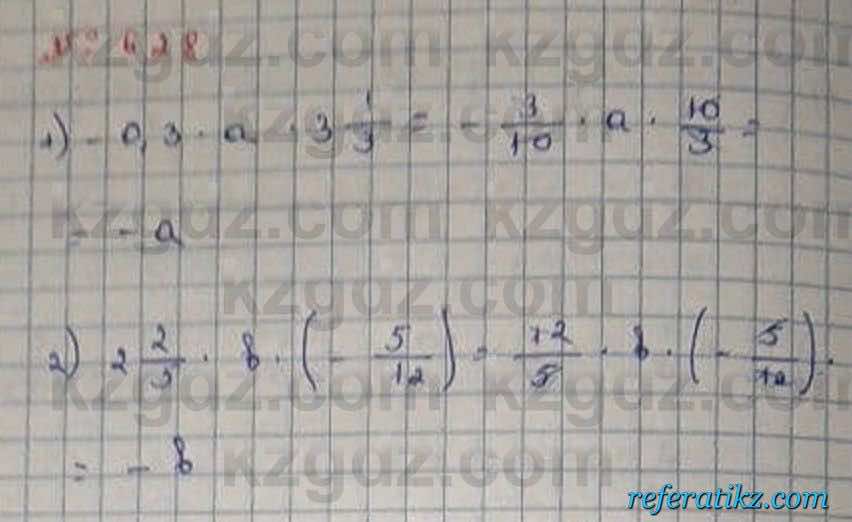 № 628
1) - 0,3 · a · 3 1/3 = - 3/10 · a · 10/3 =
= - a
2) 2 2/5 · b · (- 5/12) = 12/5 · b · (- 5/12) ·
= - b
kzgdz.com kzgdz.com
kzgdz.com kzgdz.com
kzgdz.com kzgdz.com
kzgdz.com
kzgdz.com
referatikz.com